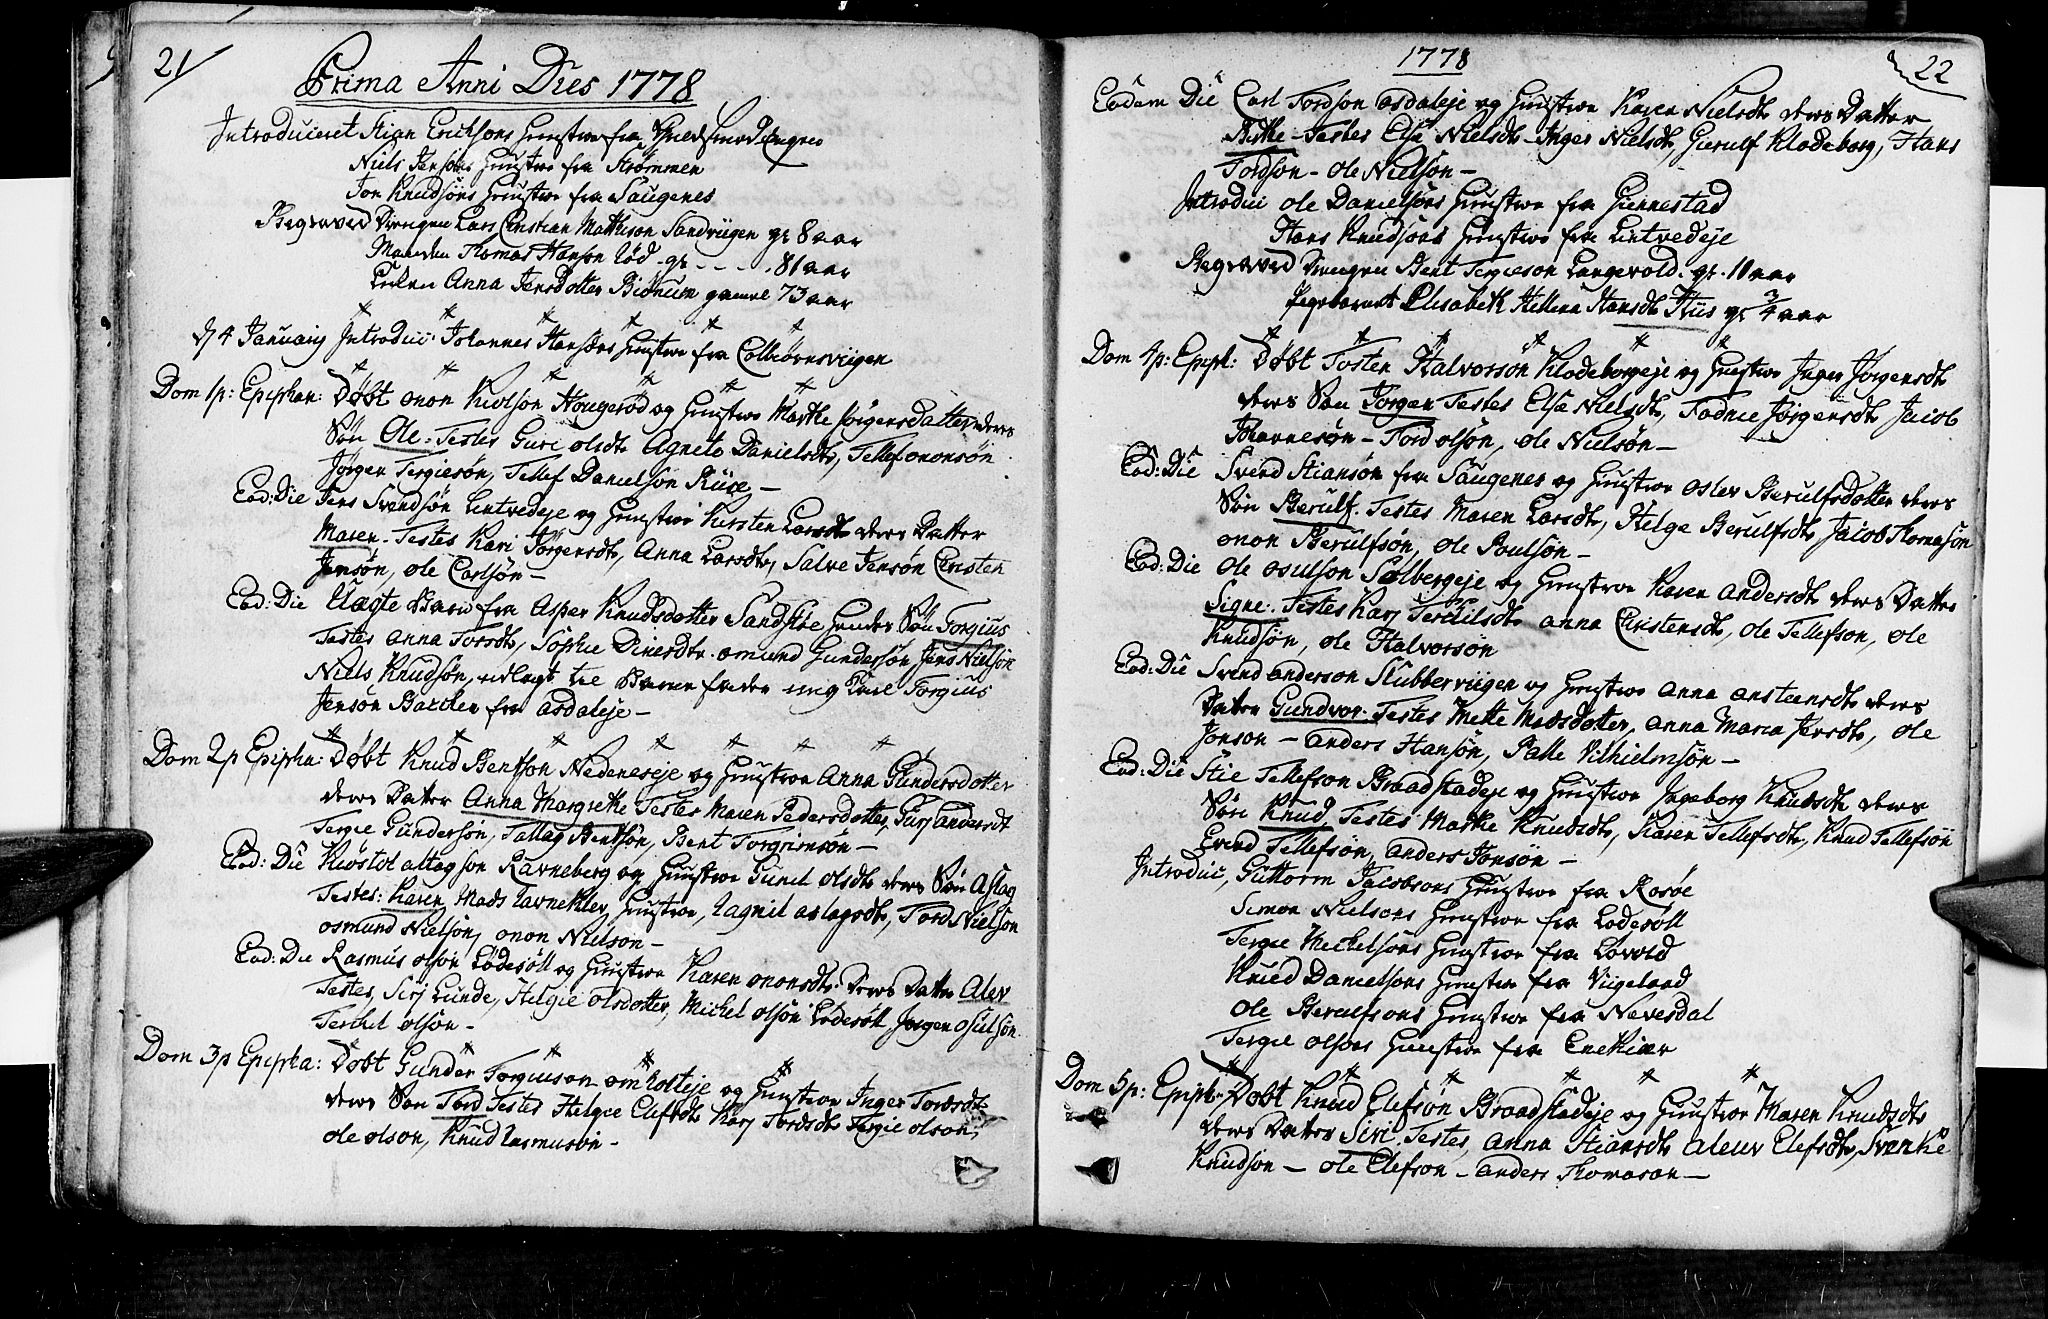 21
Prima Anni Dies 1778
Introduceret Stian Erichsøns Hustroe fra
Niels Jensøns Hustroe fra Strømmen
Jon Knudsøns Hustroe fra Saugenes
Begraved Drengen Lars Christian Mathison Sandviigen gl 8 aar
Manden Thomas Hanson Lød - gl - - - - 81 aar
Enken Anna Jensdotter Biønum gamel 73 aar
d 4 January Introduc: Johannes Hansøns Hustroe fra Colbiørnsviigen
Dom 1 p: Epiphan: Døbt onon Hougerød og Hustroe Marthe Jørgensdatter deres
Søn Ole - Testes Guri olsdt Agnete Danielsdt, Tellef ononsøn
Jørgen Tergiesøn, Tellef Danielsøn
Eod: Die Jens Svendsøn Lintvedeje og Hustroe Kirsten Larsdt deres Datter
Maren - Testes Kari Jørgensdt, Anna Larsdt, Salve Jensøn Christen
Jensøn, Ole Carlsøn -
Eod: Die Uægte Barn fra Asper Knudsdotter Sandfløe hendes Søn Torgius
Testes Anna Torsdt, Sophie omund Gundersøn Jens Nielsøn
Niels Knudsøn, udlagt til Barne fader ung Karl Torgius
Jensøn fra Asdaleje -
Dom 2 p Epipha: Døbt Knud Bentsøn Nedeneseje og Hustroe Anna Gundersdotter
deres Datter Anna Margrethe Testes Maren Pedersdotter, Gurj Andersdt
Tergie Gundersøn, Tallag Bentsøn, Bent Torgrimsøn -
Eod: Die altagson Ravneberg og Hustroe Gunil olsdt deres Søn Aslag
Testes: Karen Mads Tavnekler, Hustroe, Tagnil aslagsdt, Tord Nielsøn
osmund Nielsøn, onon Nielson -
Eod: Die Rasmus olsøn Lødesøll og Hustroe Karen ononsdt. Deres Datter Alev
Testes, Sirj Lunde, Helgie olsdotter, Michel olsøn Lødesøll, Jørgen osulsøn
Terchel olsøn -
Dom 3 p Epipha: Døbt Gunder Torgiuson omholteje og Hustroe Inger Tordsdt
deres Søn Tord Testes Helgie Elefsdt Karj Tordsdt Tergie olson,
ole olson, Knud Rasmusøn -
1778
22
Eodem Die Carl Tordson Asdaleje og Hustroe Karen Nielsdt deres Datter
- Testes Else Nielsdt - Inger Nielsdt, Gierulf Klodeborg, Hans
Tordson - Ole Nielsøn -
Introduc Ole Danielsøns Hustroe fra Giennestad
Hans Knudsøns Hustroe fra Lintvedeje
Begraved Drengen Bent Tergieson Langevold. gl. 11 aar
Pigebarnet Elisabeth Hellena Hansdt Huis gl 3/4 aar
Dom 4 p: Epiph: Døbt Tosten Halvorsøn Klodeborgeje og Hustroe Inger Jørgensdt
deres Søn Jørgen Testes Else Nielsdt, Jørgensdt Jacob
Johannesøn - Tord olsøn, ole Nielsøn -
Eod: Die Svend Stiansøn fra Saugenes og Hustroe Aslev Berulfsdotter deres
Søn Berulf. Testes Maren Larsdt, Helge Berulfsdt, Jacob Thomasøn
onon Berulfsøn, ole Poulsøn -
Eod: Die ole osulson Sølbergeje og Hustroe Karen Andersdt deres Datter
Signe: Testes Karj Terchilsdt anna Christensdt, ole Tellefson, ole
Knudsøn, ole Halvorsøn
Eod: Die Svend anderson Stubberviigen og Hustroe Anna anstensdt deres
Datter Gundvor. Testes Mette Madsdotter, Anna Maria Jensdt, ole
Jonson - Anders Hansøn, Palle Vilhielmsøn -
Eod: Die Stie Tellefson Braadstadeje og Hustroe Ingeborg Knudsdt deres
Søn Knud Testes Marthe Knudsdt, Karen Tellefsdt, Knud Tellefsøn
Tellefsøn, anders Jonsøn -
Introduc, Guttorm Jacobsøns Hustroe fra Rosøe
Simon Nielsøns Hustroe fra Lødesøll
Tergie Michelsøns Hustroe fra Løvold
Knud Danielsøns Hustroe fra Viigeland
ole Berulfsøns Hustroe fra Nevesdal
Tergie olsøns Hustroe fra Enekier
Dom 5 p: Epiph: Døbt Knud Elefsøn Braadstadeje og Hustroe Maren Knudsdt
deres Datter Siri Testes, Anna Stiansdt Aleuv Elefsdt, Svenke
Knudsøn - ole Elefson - anders Thomason -